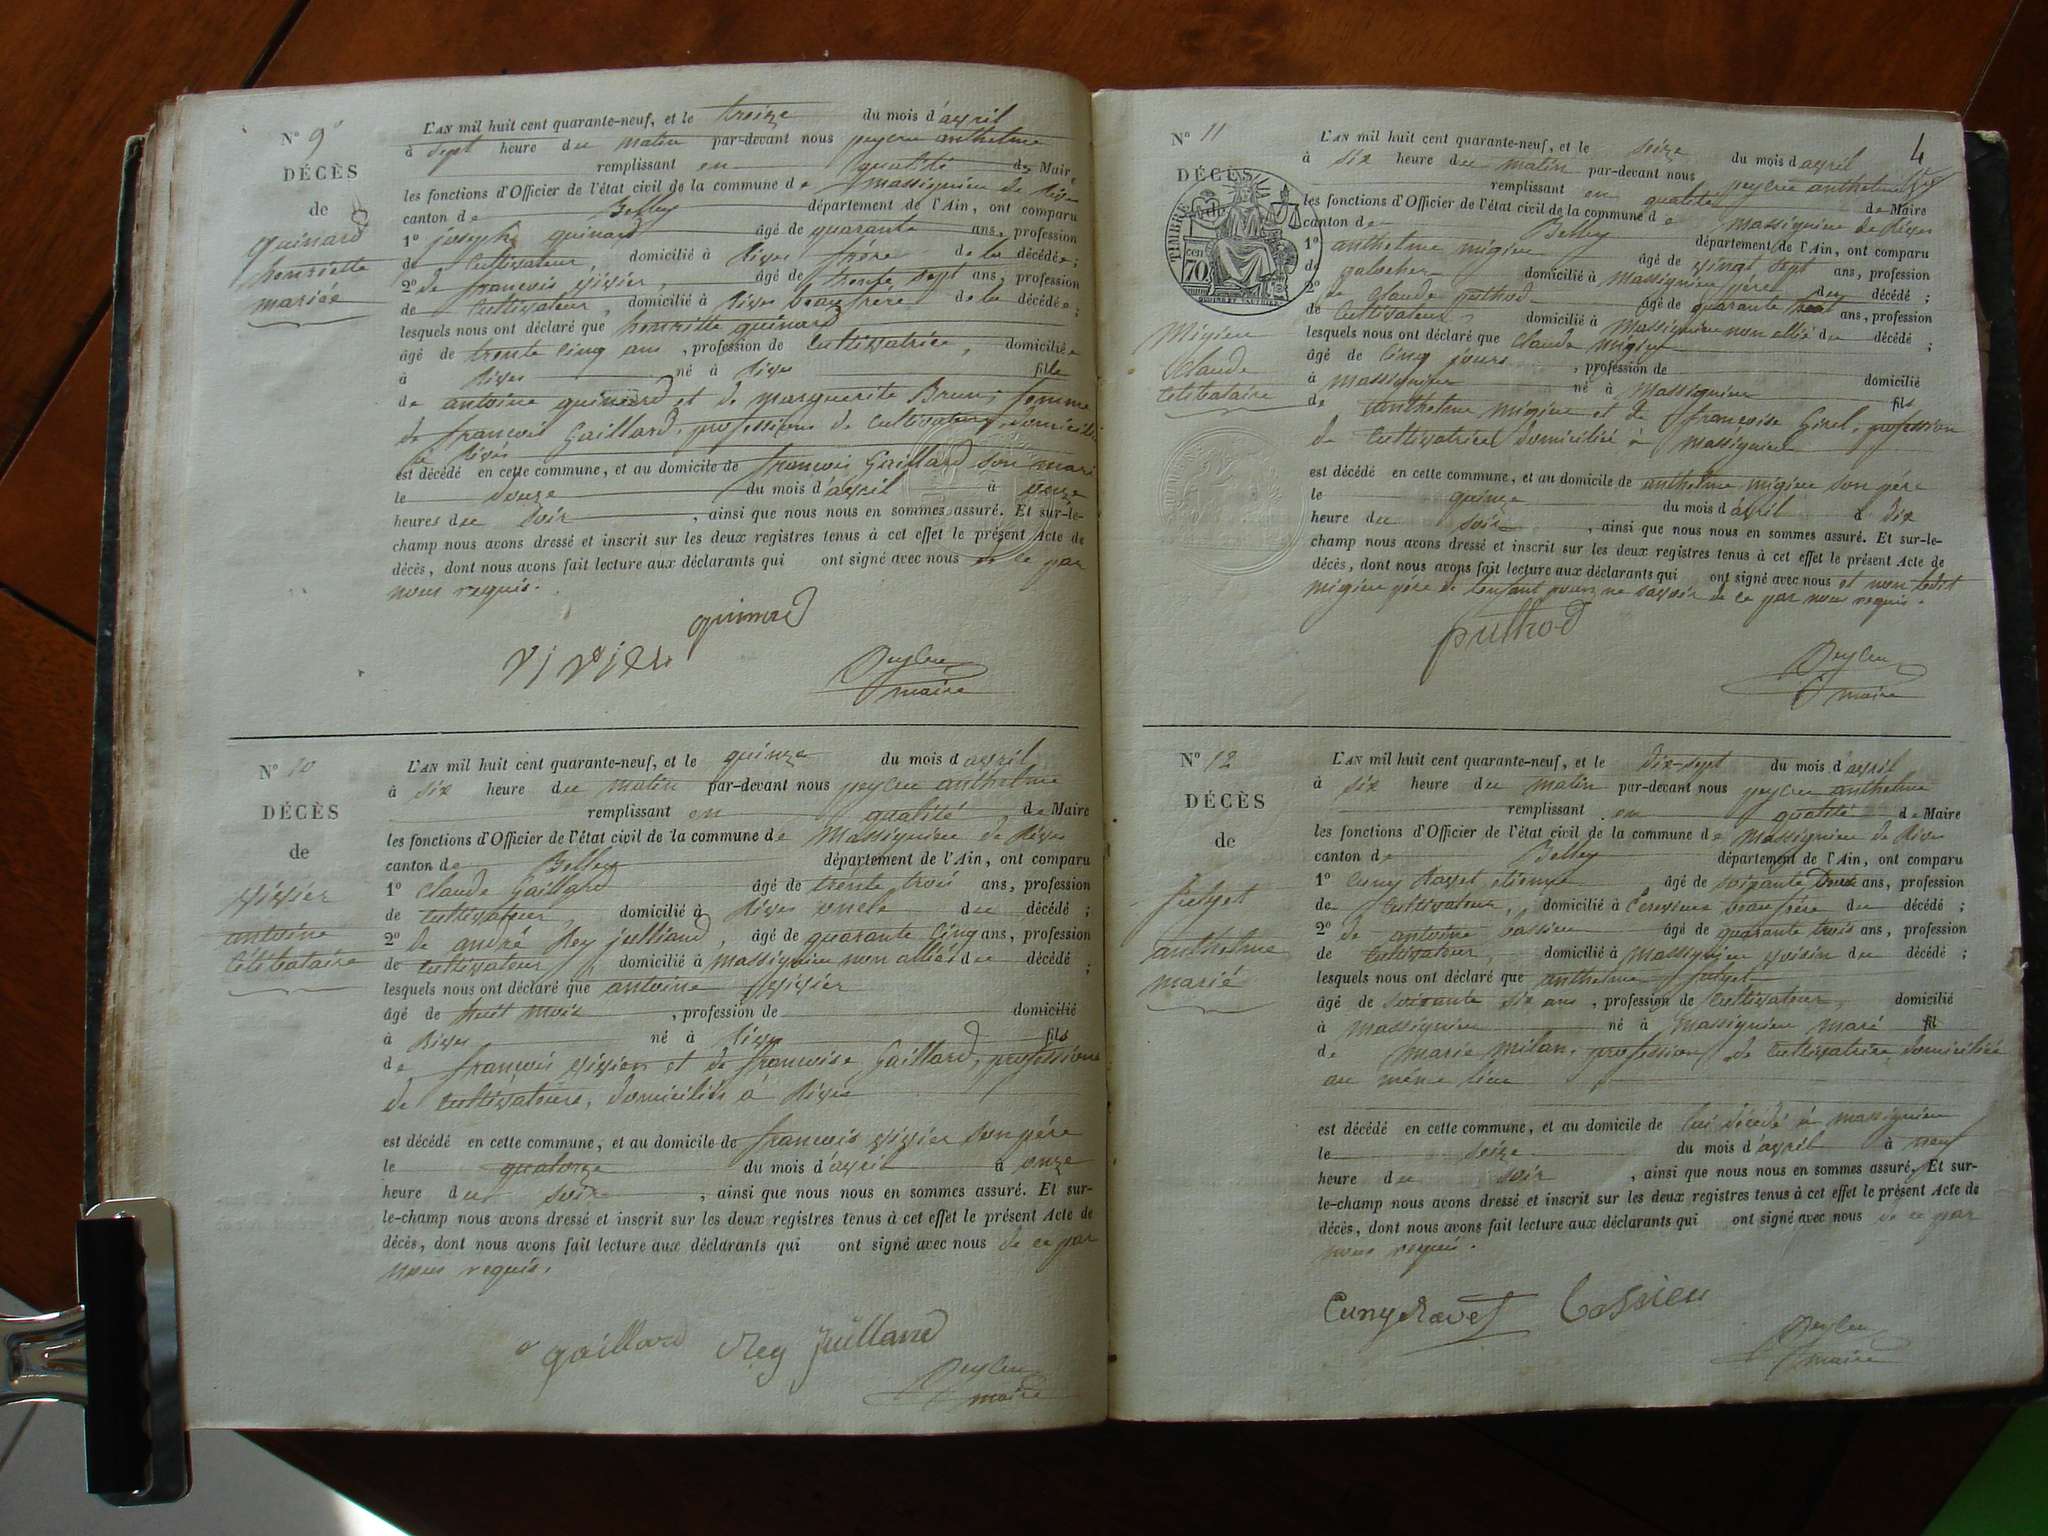 N° 9
DÉCÈS
de
guinard
henriette
mariée
L'AN mil huit cent quarante-neuf, et le treize du mois d'avril
à sept heure du matin par-devant nous peyleu anthelme
remplissant en qualité de Maire
les fonctions d'Officier de l'état civil de la commune de massignieu de Rives
canton de Belley département de l'Ain, ont comparu
1° joseph guinard âgé de quarante ans, profession
de Cultivateur, domicilié à Rives frère de la décédée;
2° de françois vivier, âgé de trente sept ans, profession
de Cultivateur, domicilié à Rives beau frère de la décédée;
lesquels nous ont déclaré que henriette guinard
âgé de trente Cinq ans, profession de Cultivatrice, domiciliée
à Rives né à Rives fille
de antoine guinard et de marguerite Brun, femme
de françois Gaillard, professions de Cultivateurs, domicilié
à Rives
est décédé en cette commune, et au domicile de françois Gaillard son mari
le douze du mois d'avril à onze
heures du soir, ainsi que nous nous en sommes assuré. Et sur-le-
champ nous avons dressé et inscrit sur les deux registres tenus à cet effet le présent Acte de
décès, dont nous avons fait lecture aux déclarants qui ont signé avec nous de ce par
nous requis.
guinard
vivier
Peyleu
maire
N° 10
DÉCÈS
de
vivier
antoine
Célibataire
L'AN mil huit cent quarante-neuf, et le quinze du mois d'avril
à six heure du matin par-devant nous peyleu anthelme
remplissant en qualité de Maire
les fonctions d'Officier de l'état civil de la commune de Massignieu de Rives
canton de Belley département de l'Ain, ont comparu
1° Claude Gaillard âgé de trente trois ans, profession
de Cultivateur, domicilié à Rives oncle du décédé;
2° de andré Rey juilland, âgé de quarante Cinq ans, profession
de Cultivateur, domicilié à massignieu non allié du décédé;
lesquels nous ont déclaré que antoine vivier
âgé de huit mois, profession de domicilié
à Rives né à Rives fils
de françois vivier et de françoise Gaillard, professions
de Cultivateurs, domiciliés à Rives
est décédé en cette commune, et au domicile de françois vivier son père
le quatorze du mois d'avril à onze
heure du soir, ainsi que nous nous en sommes assuré. Et sur-
le-champ nous avons dressé et inscrit sur les deux registres tenus à cet effet le présent Acte de
décès, dont nous avons fait lecture aux déclarants qui ont signé avec nous de ce par
nous requis.
gaillard Rey Juilland
Peyleu
maire
4
N° 11
DÉCÈS
de
TIMBRE
70 cen
Migieu
Claude
Célibataire
L'AN mil huit cent quarante-neuf, et le seize du mois d'avril
à six heure du matin par-devant nous peyleu anthelme
remplissant en qualité de Maire
les fonctions d'Officier de l'état civil de la commune de massignieu de Rives
canton de Belley département de l'Ain, ont comparu
1° anthelme migieu âgé de vingt sept ans, profession
de galocher domicilié à Massignieu père du décédé;
2° de Claude puthod âgé de quarante huit ans, profession
de Cultivateur, domicilié à Massignieu non allié du décédé;
lesquels nous ont déclaré que Claude migieu
âgé de Cinq jours, profession de domicilié
à massignieu né à Massignieu fils
de anthelme migieu et de françoise Girel, profession
de Cultivatrice domiciliée à massignieu
est décédé en cette commune, et au domicile de anthelme migieu son père
le quinze du mois d'avril à dix
heure du soir, ainsi que nous nous en sommes assuré. Et sur-le-
champ nous avons dressé et inscrit sur les deux registres tenus à cet effet le présent Acte de
décès, dont nous avons fait lecture aux déclarants qui ont signé avec nous et non ledit
migieu père de l'enfant pour ne savoir de ce par nous requis.
puthod
Peyleu
maire
N° 12
DÉCÈS
de
juljet
anthelme
marié
L'AN mil huit cent quarante-neuf, et le dix-sept du mois d'avril
à six heure du matin par-devant nous peyleu anthelme
remplissant en qualité de Maire
les fonctions d'Officier de l'état civil de la commune de Massignieu de Rives
canton de Belley département de l'Ain, ont comparu
1° Cuny Ravet etienne âgé de soixante ans, profession
de Cultivateur, domicilié à beau frère du décédé;
2° de antoine Cassieu âgé de quarante trois ans, profession
de Cultivateur, domicilié à Massignieu voisin du décédé;
lesquels nous ont déclaré que anthelme juljet
âgé de soixante six ans, profession de Cultivateur domicilié
à Massignieu né à Massignieu mari fil
de marie milan, profession de Cultivatrice domiciliée
au même lieu
est décédé en cette commune, et au domicile de lui décédé à massignieu
le seize du mois d'avril à neuf
heure du soir, ainsi que nous nous en sommes assuré. Et sur-
le-champ nous avons dressé et inscrit sur les deux registres tenus à cet effet le présent Acte de
décès, dont nous avons fait lecture aux déclarants qui ont signé avec nous de ce par
nous requis.
Cuny Ravet Cassieu
Peyleu
maire